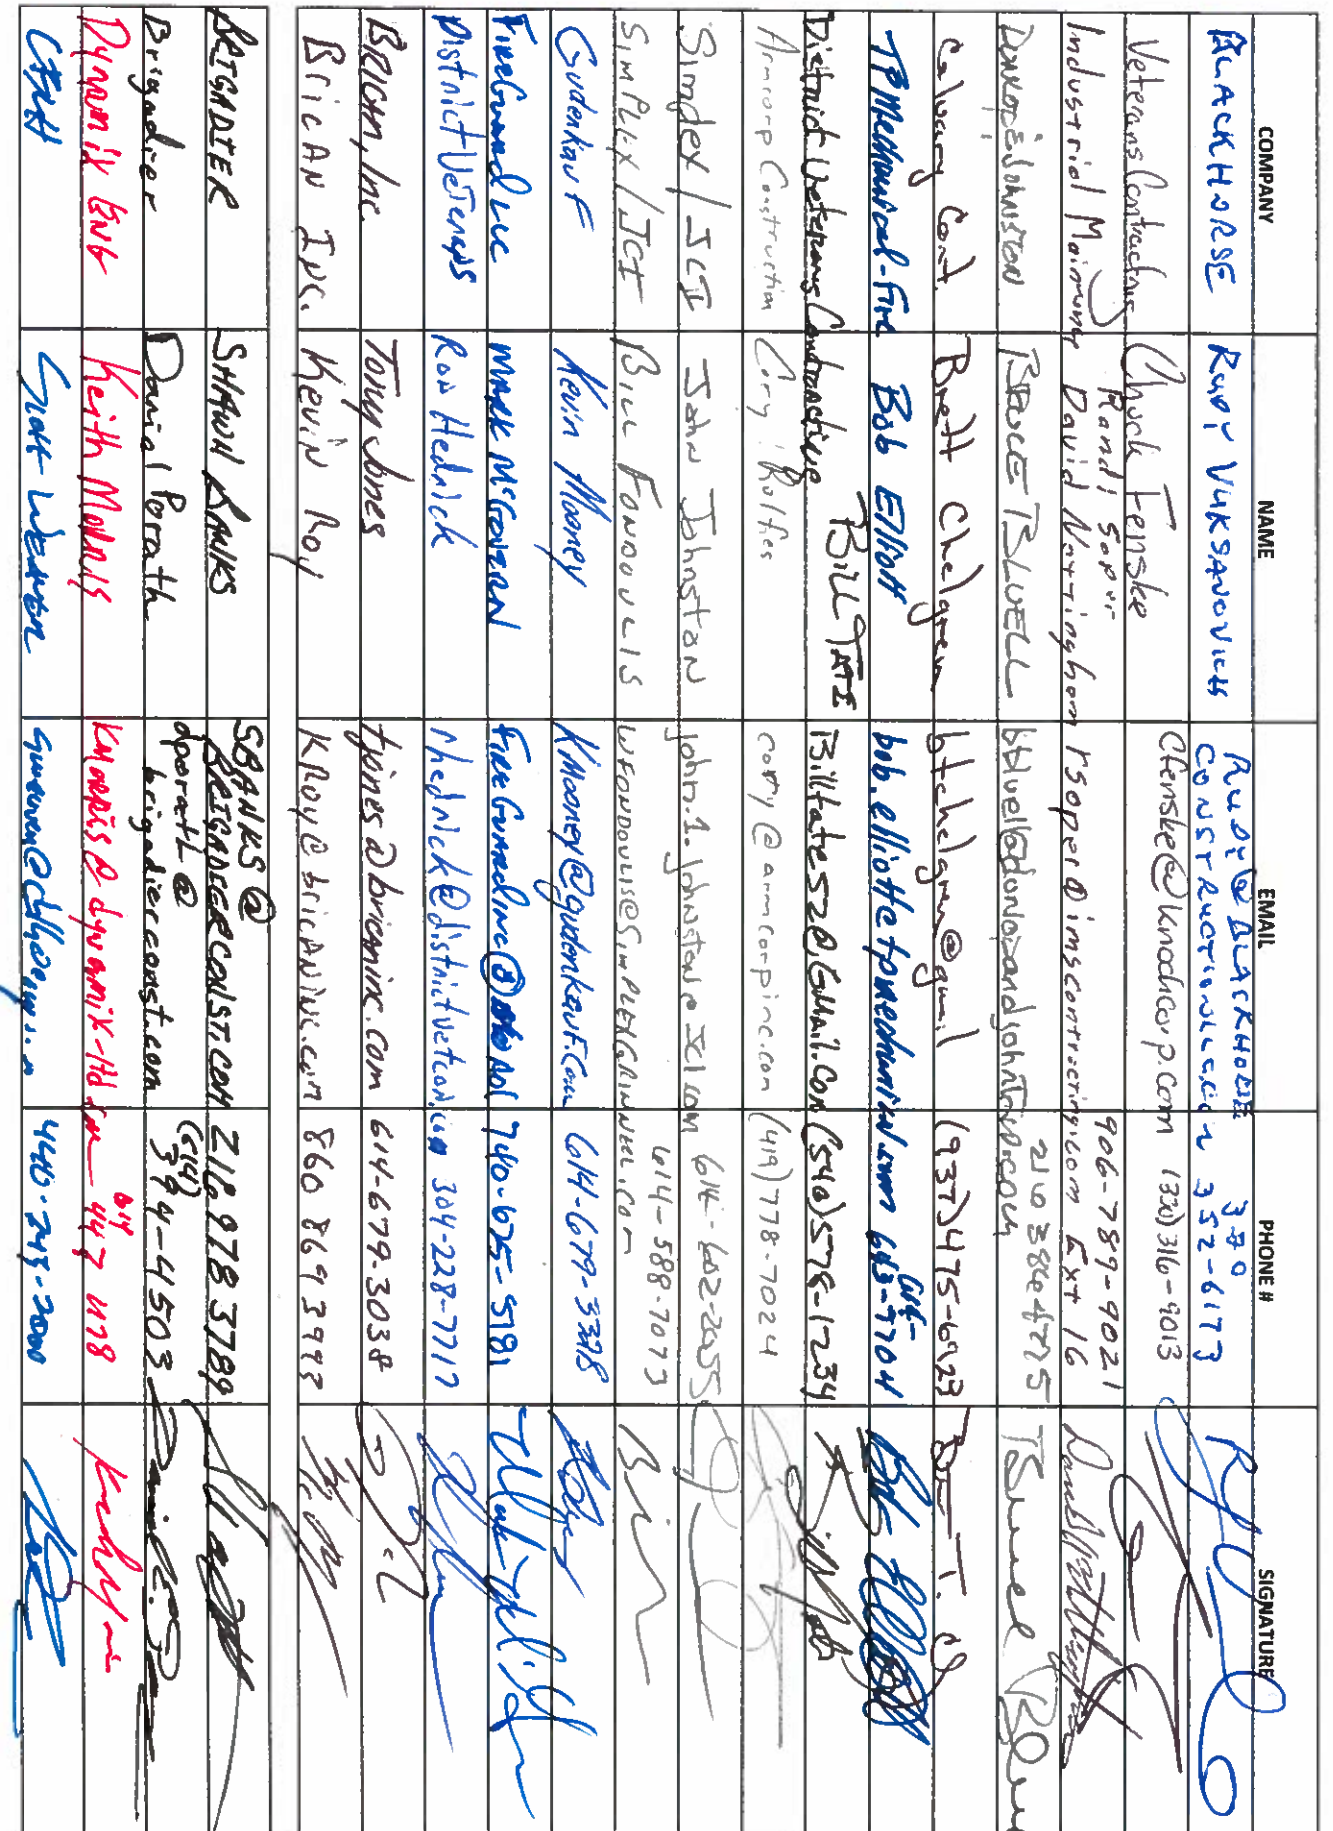 COMPANY NAME EMAIL PHONE # SIGNATURE
BLACKHORSE RUDY VUKSANOVICH RUDY@BLACKHORSE CONSTRUCTIONLLC.COM 330 352-6173
Veterans Contracting Chuck Fenske Cfenske@knochcorp.com (330)316-9013
Industrial Maintenance Randi Soper David Nottingham rsoper@imscontracting.com 906-789-9021 Ext 16
Donzo & Johnston BRUCE BLUELL bbluell@donzoandjohnston.com 216 386 4775
Calvary Cont. Brett Chelgren btchelgren@gmail (937)475-6923
TP Mechanical-Fire Bob Elliott bob.elliott@tpmechanical.com 614-663-9704
District Veterans Contracting BILL TATE Billtate52@Gmail.Com (540)578-1234
Armcorp Construction Cory Rolfes cory@armcorpinc.com (419)778-7024
Simplex/JCI John Johnston john.1.johnston@jci.com 614-602-2055
SIMPLEX/JCI BILL FONDOULIS WFONDOULIS@SIMPLEXGRINNELL.COM 614-588-7073
Gudenkauf Kevin Mooney KMooney@gudenkauf.com 614-679-3398
FireGuard LLC MARK McGOVERN FireGuardinc@aol 740-675-5181
District Veterans Ron Hedrick rhedrick@districtvetcon.com 304-228-7717
BRICAN, Inc. Tony Jones tjones@bricaninc.com 614-679-3038
BricAN INC. Kevin Roy KRoy@bricANinc.com 860 869 3993
BRIGADIER SHAWN BANKS SBANKS@BRIGADIERCONST.COM 216 978 3789
Brigadier Danial Porath dporath@brigadierconst.com (614) 394-4503
Dynamix ENG Keith Morris KMORRIS@dynamix-ltd.com 614 447 1178
Scott Weaver 440-243-2000